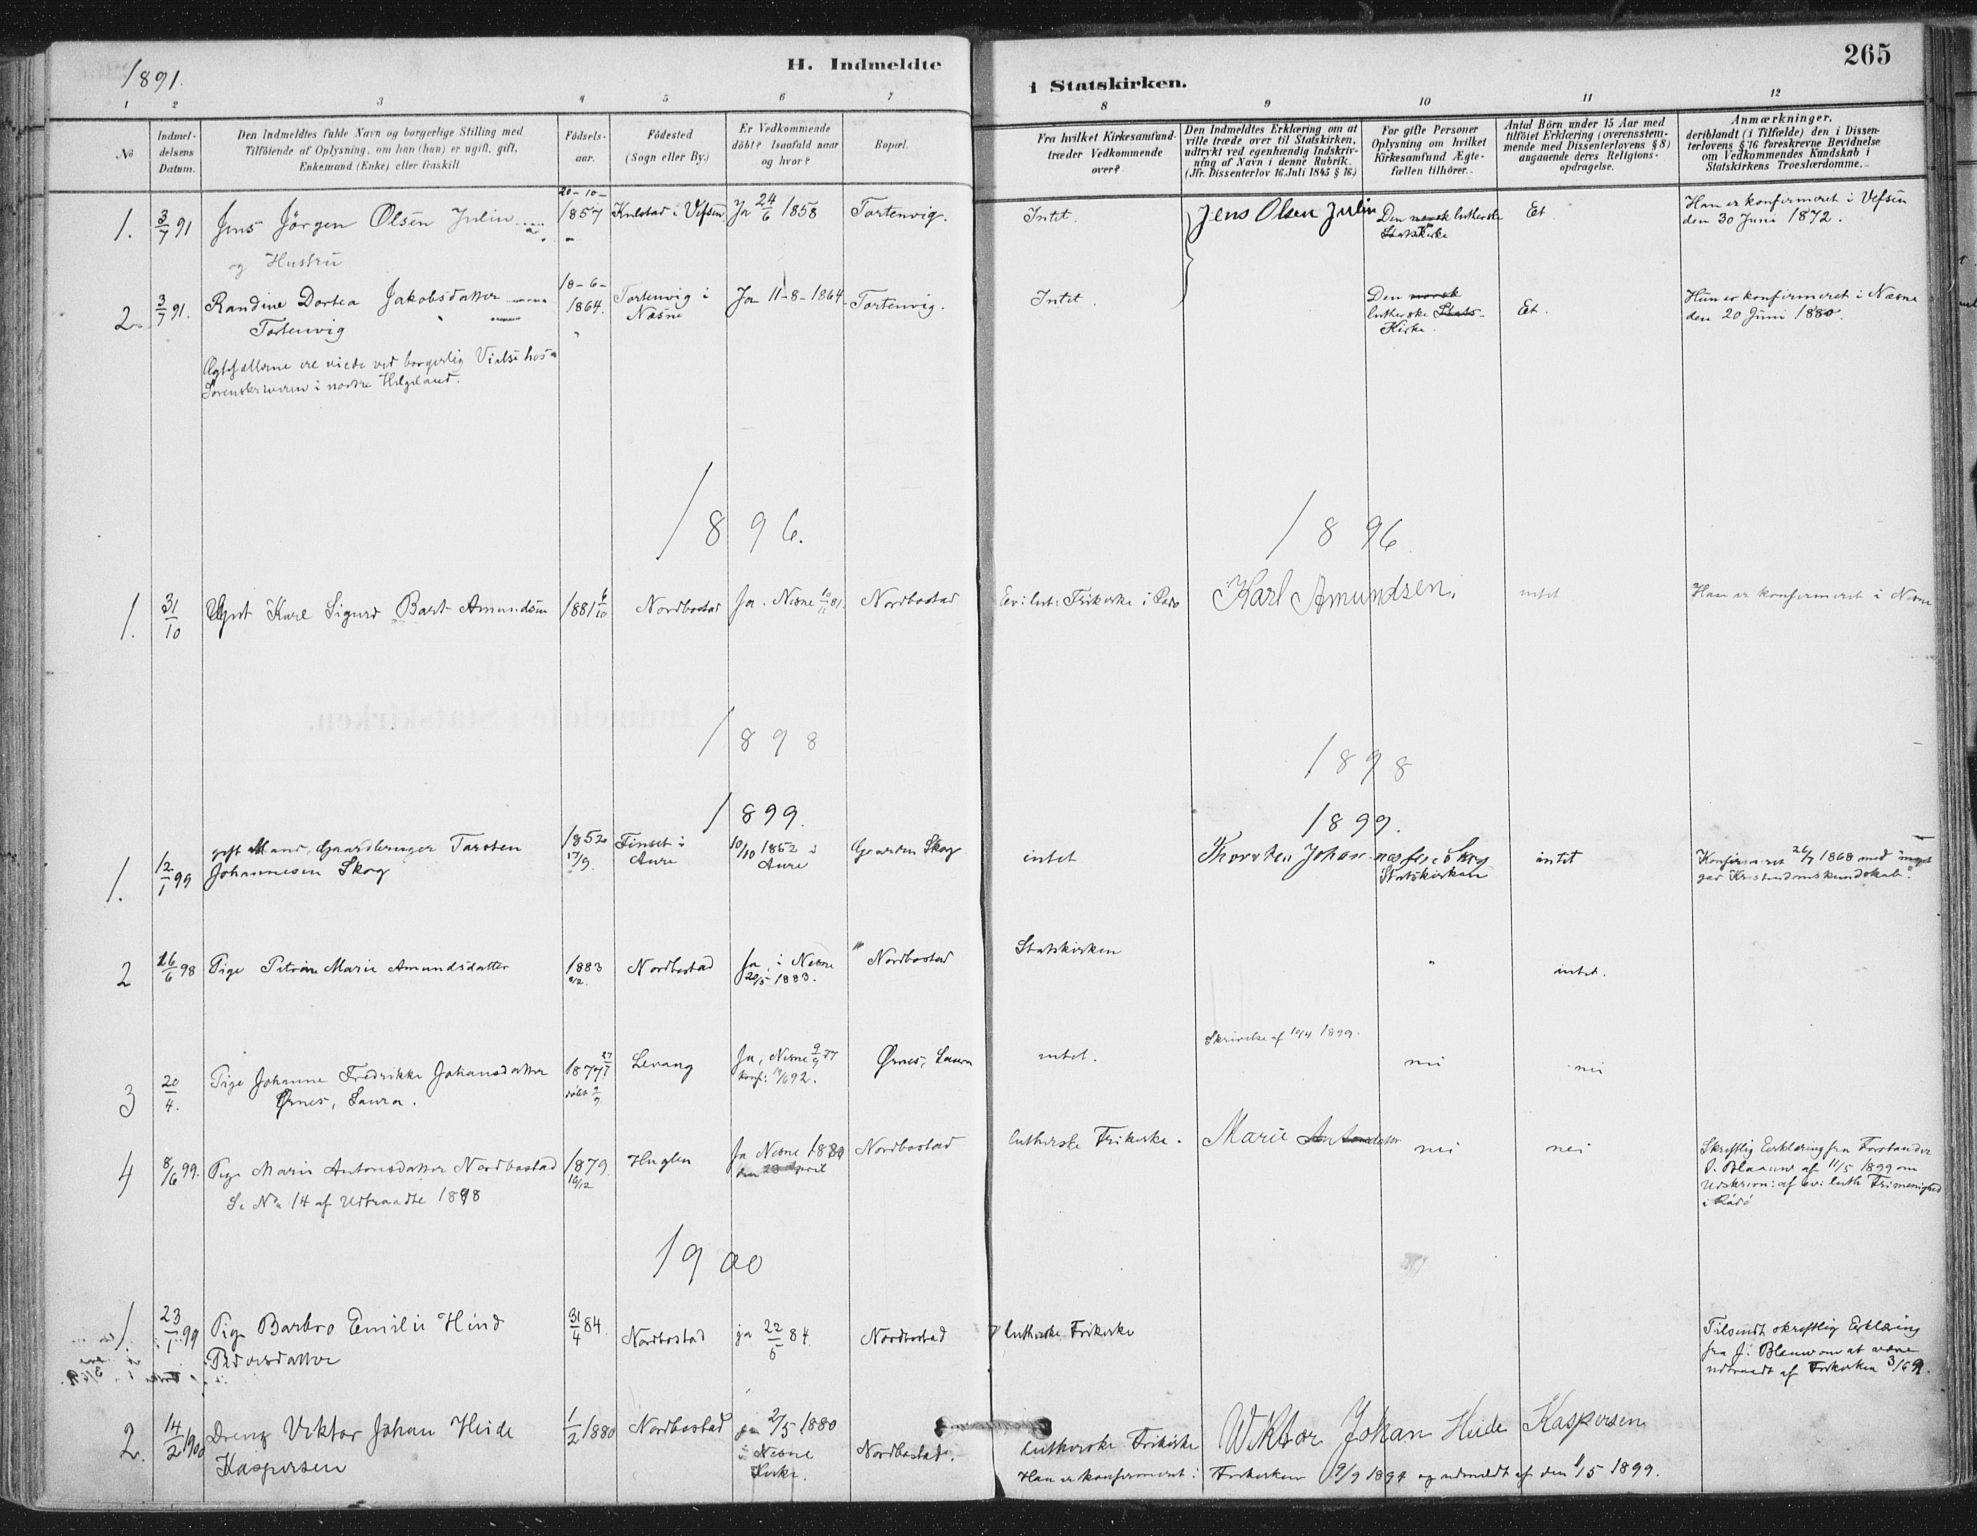 1891.
H. Indmeldte
i Statskirken.
265
1 2 3 4 5 6 7 8 9 10 11 12
No
Indmel-
delsens
Datum.
Den Indmeldtes fulde Navn og borgerlige Stilling med
Tilföiende af Oplysning, om han (hun) er ugift, gift,
Enkemand (Enke) eller fraskilt
Födsels-
aar.
Födested
(Sogn eller By.)
Er Vedkommende
döbt? Isaafald naar
og hvor?
Bopæl.
Fra hvilket Kirkesamfund
træder Vedkommende
over?
Den Indmeldtes Erklæring om at
ville træde over til Statskirken,
udtrykt ved egenhændig Indskriv-
ning af Navn i denne Rubrik.
(Jfr. Dissenterlov 16. Juli 1845 § 16.)
For gifte Personer
Oplysning om hvilket
Kirkesamfund Ægte-
fællen tilhörer.
Antal Börn under 15 Aar med
tilföiet Erklæring (overensstem-
mende med Dissenterlovens § 8)
angaaende deres Religions-
opdragelse.
Anmærkninger,
deriblandt (i Tilfælde) den i Dissen-
terlovens § 16 foreskrevne Bevidnelse
om Vedkommendes Kundskab i
Statskirkens Troeslærdomme.
1. 3/7 91 Jens Jörgen Olsen Julin
og Hustru
20-10-
1857
Kulstad i Vefsen
Ja 24/6 1858
Tortenvig.
Intet.
Jens Olsen Julin
Den norsk lutherske
Statskirke
Et.
Han er konfirmeret i Vefsen
den 30 Juni 1872.
2. 3/7 91. Randine Dortea Jakobsdatter
Tortenvig
18-6-
1864.
Tortenvig i
Næsne
Ja 11-8-1864
Tortenvig.
Intet.
Den norsk
lutherske Stats-
Kirke.
Et.
Hun er konfirmeret i Næsne
den 20 Juni 1880.
Ægtefællerne ere viede ved borgerlig Vielse hos
Sorenskriveren i nordre Helgeland.
1896. 1896
1. 31/10 Ugift Karl Sigurd Bast Amundsen
1881 6/10
Nordbostad
Ja. Nesne 10/11 81.
Nordbostad
Ev: luth: Frikirke i Rødø
Karl Amundsen.
intet
Han er konfirmeret i Nesne
1898 1898
1899. 1899.
1. 12/1 99 gift Mand, Gaardbruger Torsten
Johannesen Skog
1852
17/9.
Finset i
Aure
10/10 1852 i
Aure
Gaarden Skog
intet
Thorsten Johannesen Skog
Statskirken
intet
Konfirmeret 26/7 1868 med meget
god Kristendomskundskab.
2 16/6 98 Pige Petrine Marie Amundsdatter
1883
Nordbostad
Ja i Nesne
20/5 1883.
Nordbostad
Statskirken
"
intet.
3 20/4. Pige Johanne Fredrikke Johansdatter
Ørnes, Saura.
1877
døbt 2/9
Levang
Ja, Nesne 9/9 77
konf: 19/6 92.
Ørnes, Saura
intet.
Skrivelse af 10/4 1899.
nei
nei
4 8/6 99. Pige Marie Antonsdatter Nordbostad
Se No 14 af Udtraadte 1898
1879.
16/12
Huglen
Ja Nesne 1880
den 28 april
Nordbostad
lutherske Frikirke.
Marie Antonsdatter
nei
nei
Skriftlig Erklæring fra Forstander
P. Blaauw af 11/5 1899 om
Udskrivn: af ev: luth Frimenighed
i Rödö
1900
1. 23/1 99 Pige Barbro Emilie Hind
Pedersdatter
31/4 84.
Nordbostad
ja 22/5 84
Nordbostad
lutherske Frikirke
Tilsendt skriftlig Erklæring
fra J. Blauw om at være
udtraadt af Frikirken 3/6 99.
2. 14/2 1900 Dreng Viktor Johan Heide
Kaspersen
1/2 1880
Nordbostad
ja 2/5 1880
i Nesne
Kirke.
Nordbostad.
lutherske Frikirke
Wiktor Johan Heide Kaspersen
Han er konfirmeret i Frikirken 9/9 1894 og udmeldt af den 1/5 1899.